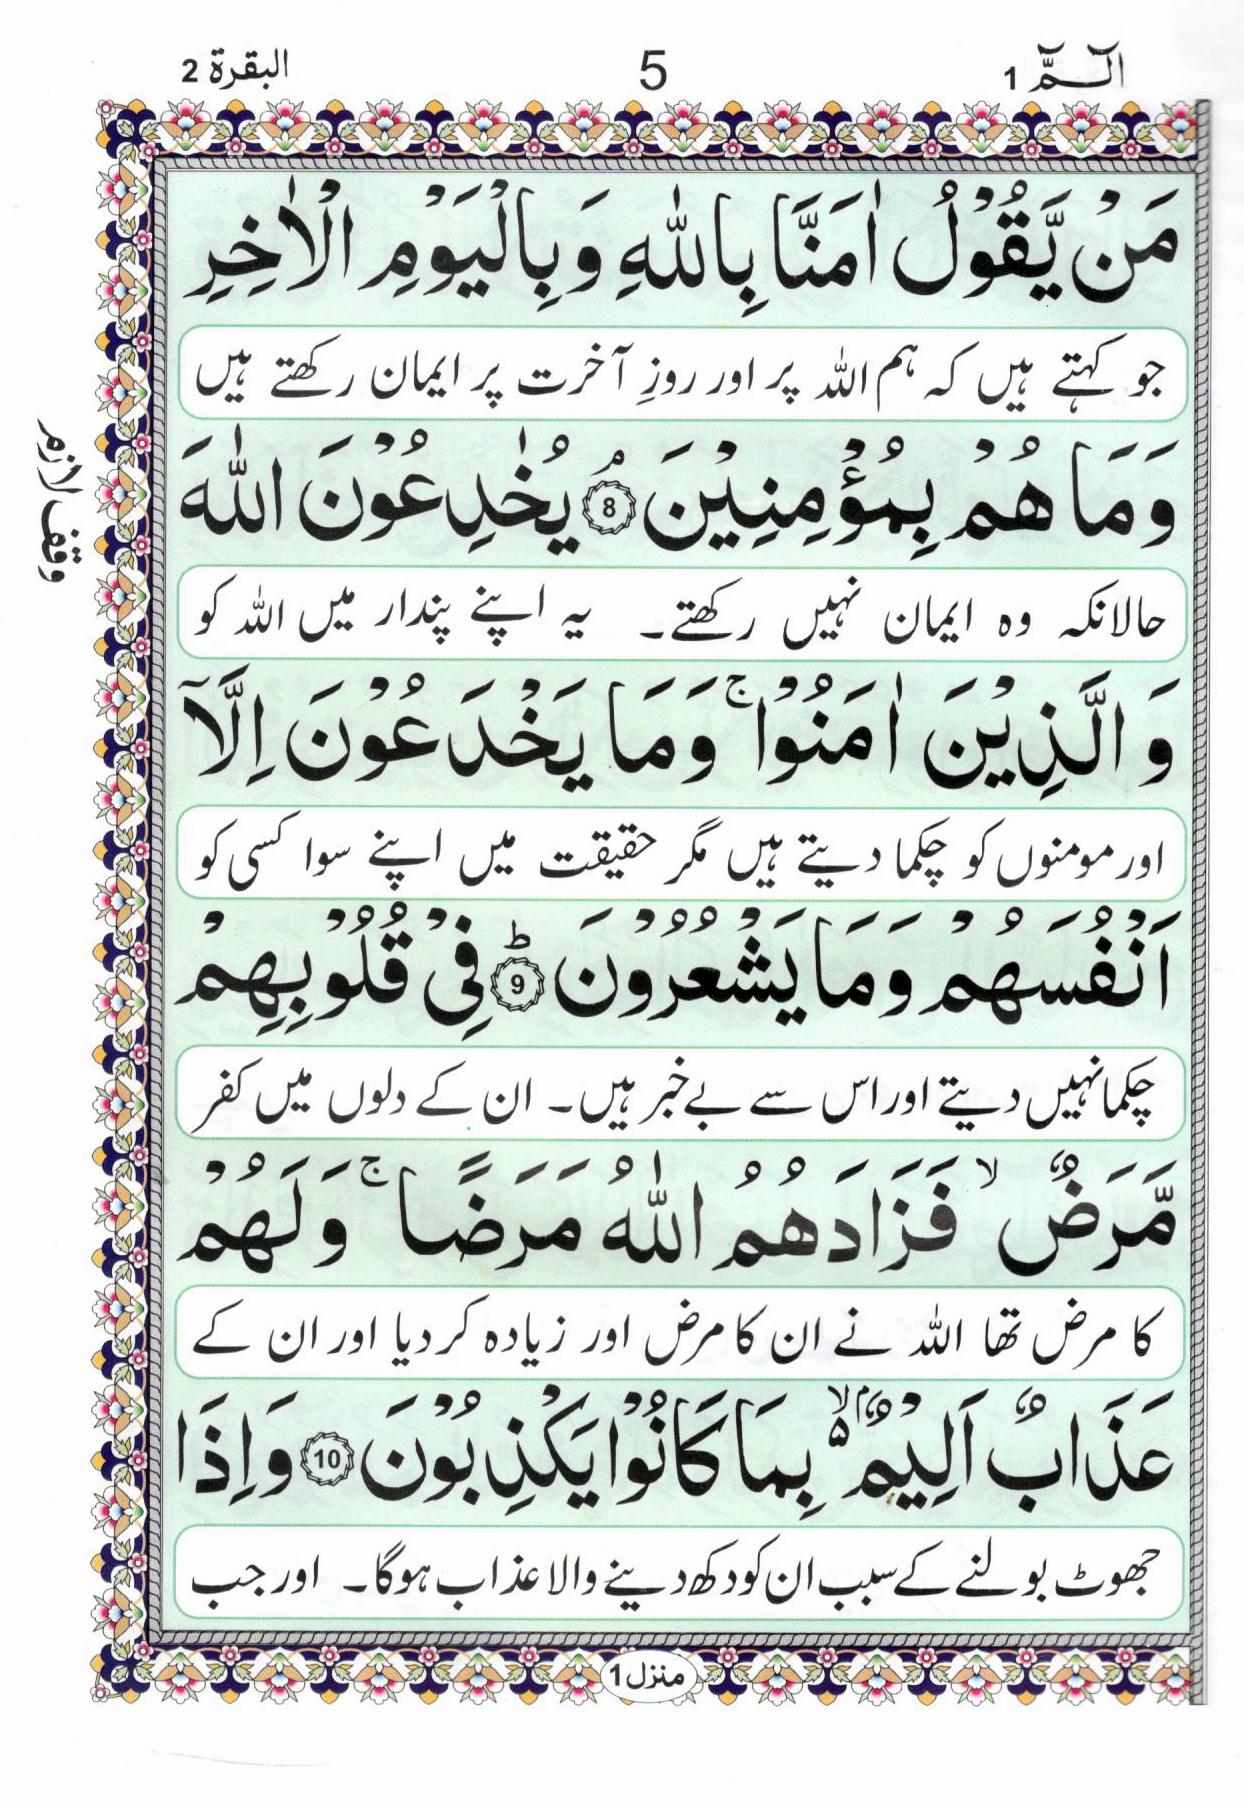 الٓـمّٓ 1
5
البقرة 2
مَنْ يَّقُوْلُ اٰمَنَّا بِاللّٰهِ وَبِالْيَوْمِ الْاٰخِرِ
جو کہتے ہیں کہ ہم اللہ پر اور روزِ آخرت پر ایمان رکھتے ہیں
وَمَا هُمْ بِمُؤْمِنِيْنَ ۘ 8 يُخٰدِعُوْنَ اللّٰهَ
وقف لازم
حالانکہ وہ ایمان نہیں رکھتے۔ یہ اپنے پندار میں اللہ کو
وَ الَّذِيْنَ اٰمَنُوْا ۚ وَمَا يَخْدَعُوْنَ اِلَّاۤ
اور مومنوں کو چکما دیتے ہیں مگر حقیقت میں اپنے سوا کسی کو
اَنْفُسَهُمْ وَمَا يَشْعُرُوْنَ ؕ 9 فِيْ قُلُوْبِهِمْ
چکما نہیں دیتے اور اس سے بے خبر ہیں۔ ان کے دلوں میں کفر
مَّرَضٌ ۙ فَزَادَهُمُ اللّٰهُ مَرَضًا ۚ وَلَهُمْ
کا مرض تھا اللہ نے ان کا مرض اور زیادہ کر دیا اور ان کے
عَذَابٌ اَلِيْمٌۢ ۙ۬ بِمَا كَانُوْا يَكْذِبُوْنَ 10 وَاِذَا
جھوٹ بولنے کے سبب ان کو دکھ دینے والا عذاب ہوگا۔ اور جب
منزل 1